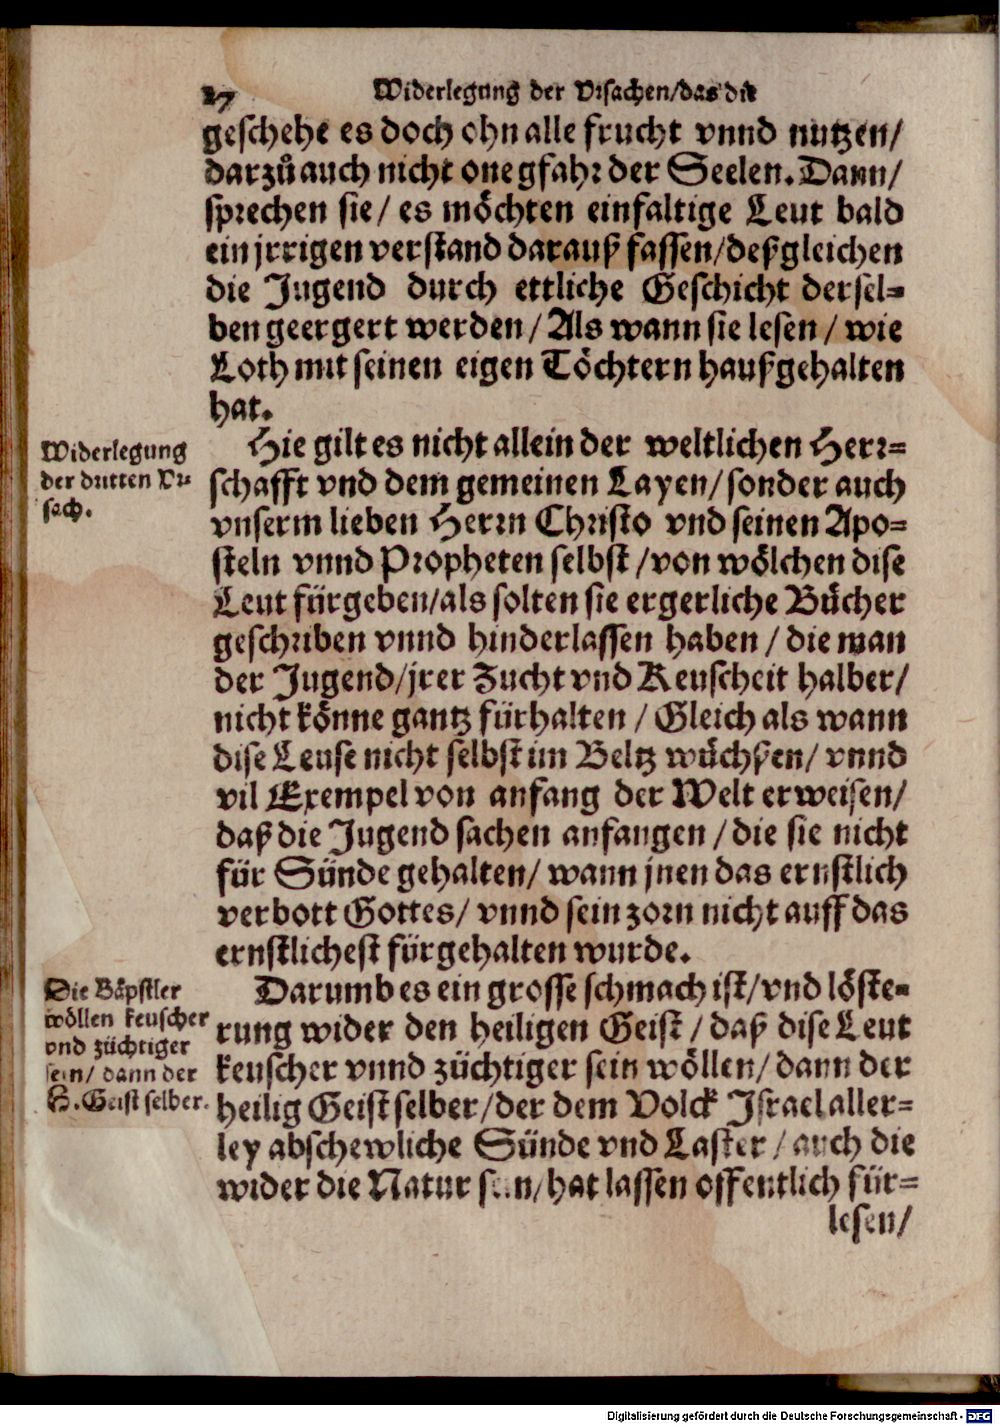 27
Widerlegung der Vrsachen/das die
geschehe es doch ohn alle frucht vnnd nutzen/
darzů auch nicht one gfahr der Seelen. Dann/
sprechen sie/ es möchten einfaltige Leut bald
ein jrrigen verstand darauß fassen/deßgleichen
die Jugend durch ettliche Geschicht dersel=
ben geergert werden/ Als wann sie lesen/ wie
Loth mit seinen eigen Töchtern haußgehalten
hat.
Widerlegung
der dritten Vr=
sach.
Hie gilt es nicht allein der weltlichen Herr=
schafft vnd dem gemeinen Layen/ sonder auch
vnserm lieben Herrn Christo vnd seinen Apo=
steln vnnd Propheten selbst/ von wölchen dise
Leut fürgeben/als solten sie ergerliche Bücher
geschriben vnnd hinderlassen haben/ die man
der Jugend/jrer Zucht vnd Keuscheit halber/
nicht könne gantz fürhalten/ Gleich als wann
dise Leuse nicht selbst im Beltz wüchßen/ vnnd
vil Exempel von anfang der Welt erweisen/
daß die Jugend sachen anfangen/ die sie nicht
für Sünde gehalten/ wann jnen das ernstlich
verbott Gottes/ vnnd sein zorn nicht auff das
ernstlichest fürgehalten wurde.
Die Bäpstler
wöllen keuscher
vnd züchtiger
sein/ dann der
H. Geist selber.
Darumb es ein grosse schmach ist/vnd löste=
rung wider den heiligen Geist/ daß dise Leut
keuscher vnnd züchtiger sein wöllen/ dann der
heilig Geist selber/der dem Volck Israel aller=
ley abschewliche Sünde vnd Laster/ auch die
wider die Natur sein/ hat lassen offentlich für=
lesen/
Digitalisierung gefördert durch die Deutsche Forschungsgemeinschaft - DFG